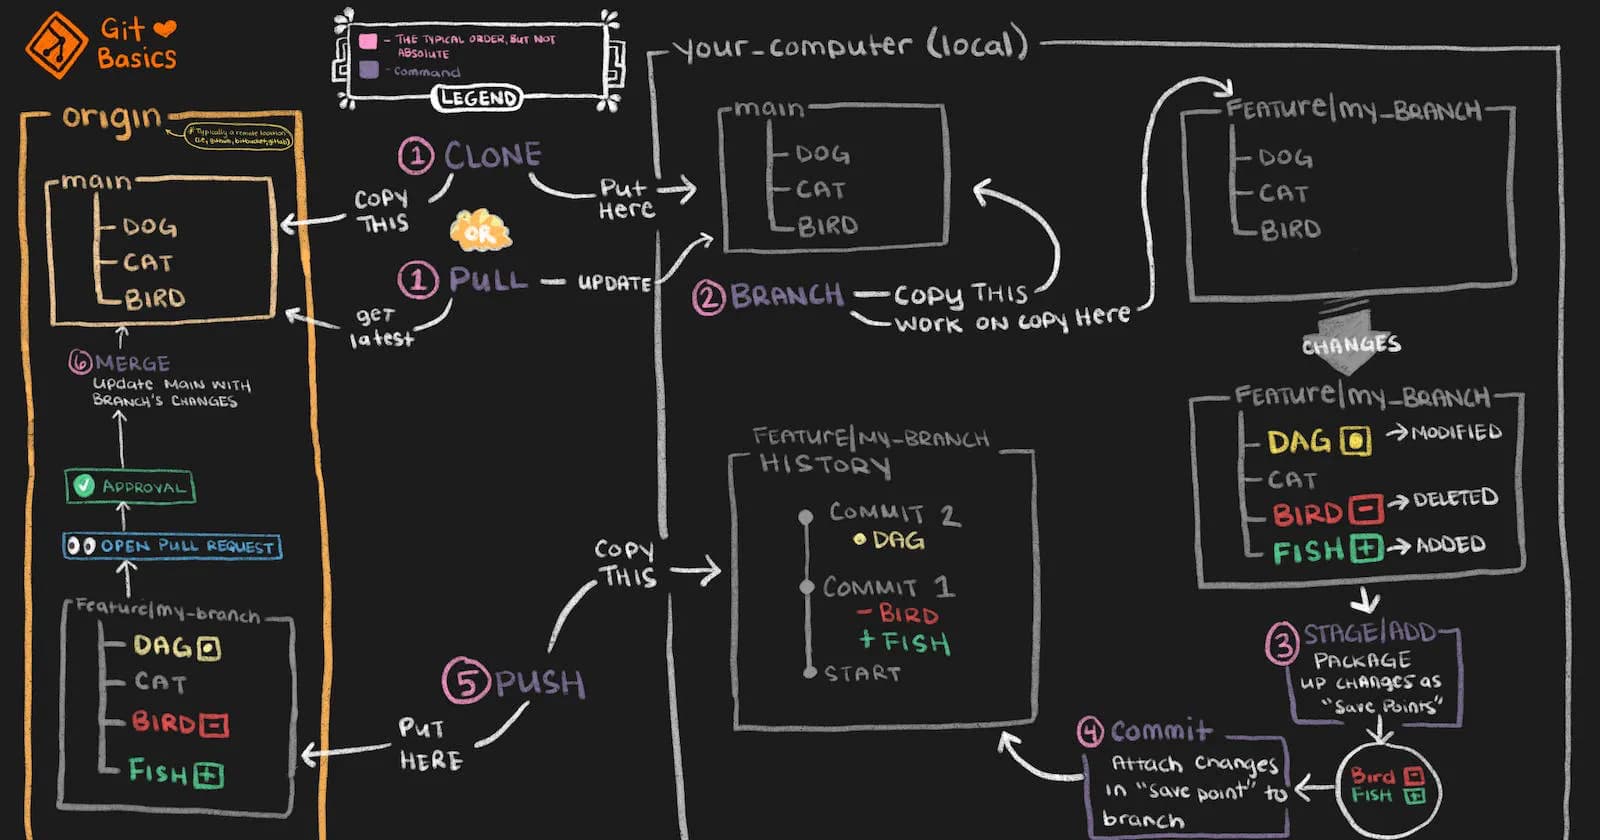 Git
Basics
- THE TYPICAL ORDER, BUT NOT
ABSOLUTE
- Command
LEGEND
origin
* Typically a remote location
(I.E., github, bitbucket, gitlab)
main
DOG
CAT
BIRD
6 MERGE
update MAIN WITH
BRANCH'S CHANGES
APPROVAL
OPEN PULL REQUEST
Feature/my-branch
DAG
CAT
BIRD -
FISH +
1 CLONE
COPY
THIS
Put
Here
OR
1 PULL
UPDATE
get
latest
5 PUSH
COPY
THIS
PUT
HERE
your_computer (local)
main
DOG
CAT
BIRD
2 BRANCH
COPY THIS
WORK ON COPY Here
FEATURE/my_BRANCH
DOG
CAT
BIRD
CHANGES
FEATURE/my_BRANCH
DAG → MODIFIED
CAT
BIRD - → DELETED
FISH + → ADDED
3 STAGE/ADD
PACKAGE
UP CHANGES AS
"Save Points"
Bird -
FISH +
4 Commit
Attach Changes
in "Save point" to
branch
FEATURE/MY-BRANCH
HISTORY
COMMIT 2
• DAG
COMMIT 1
- BIRD
+ FISH
START